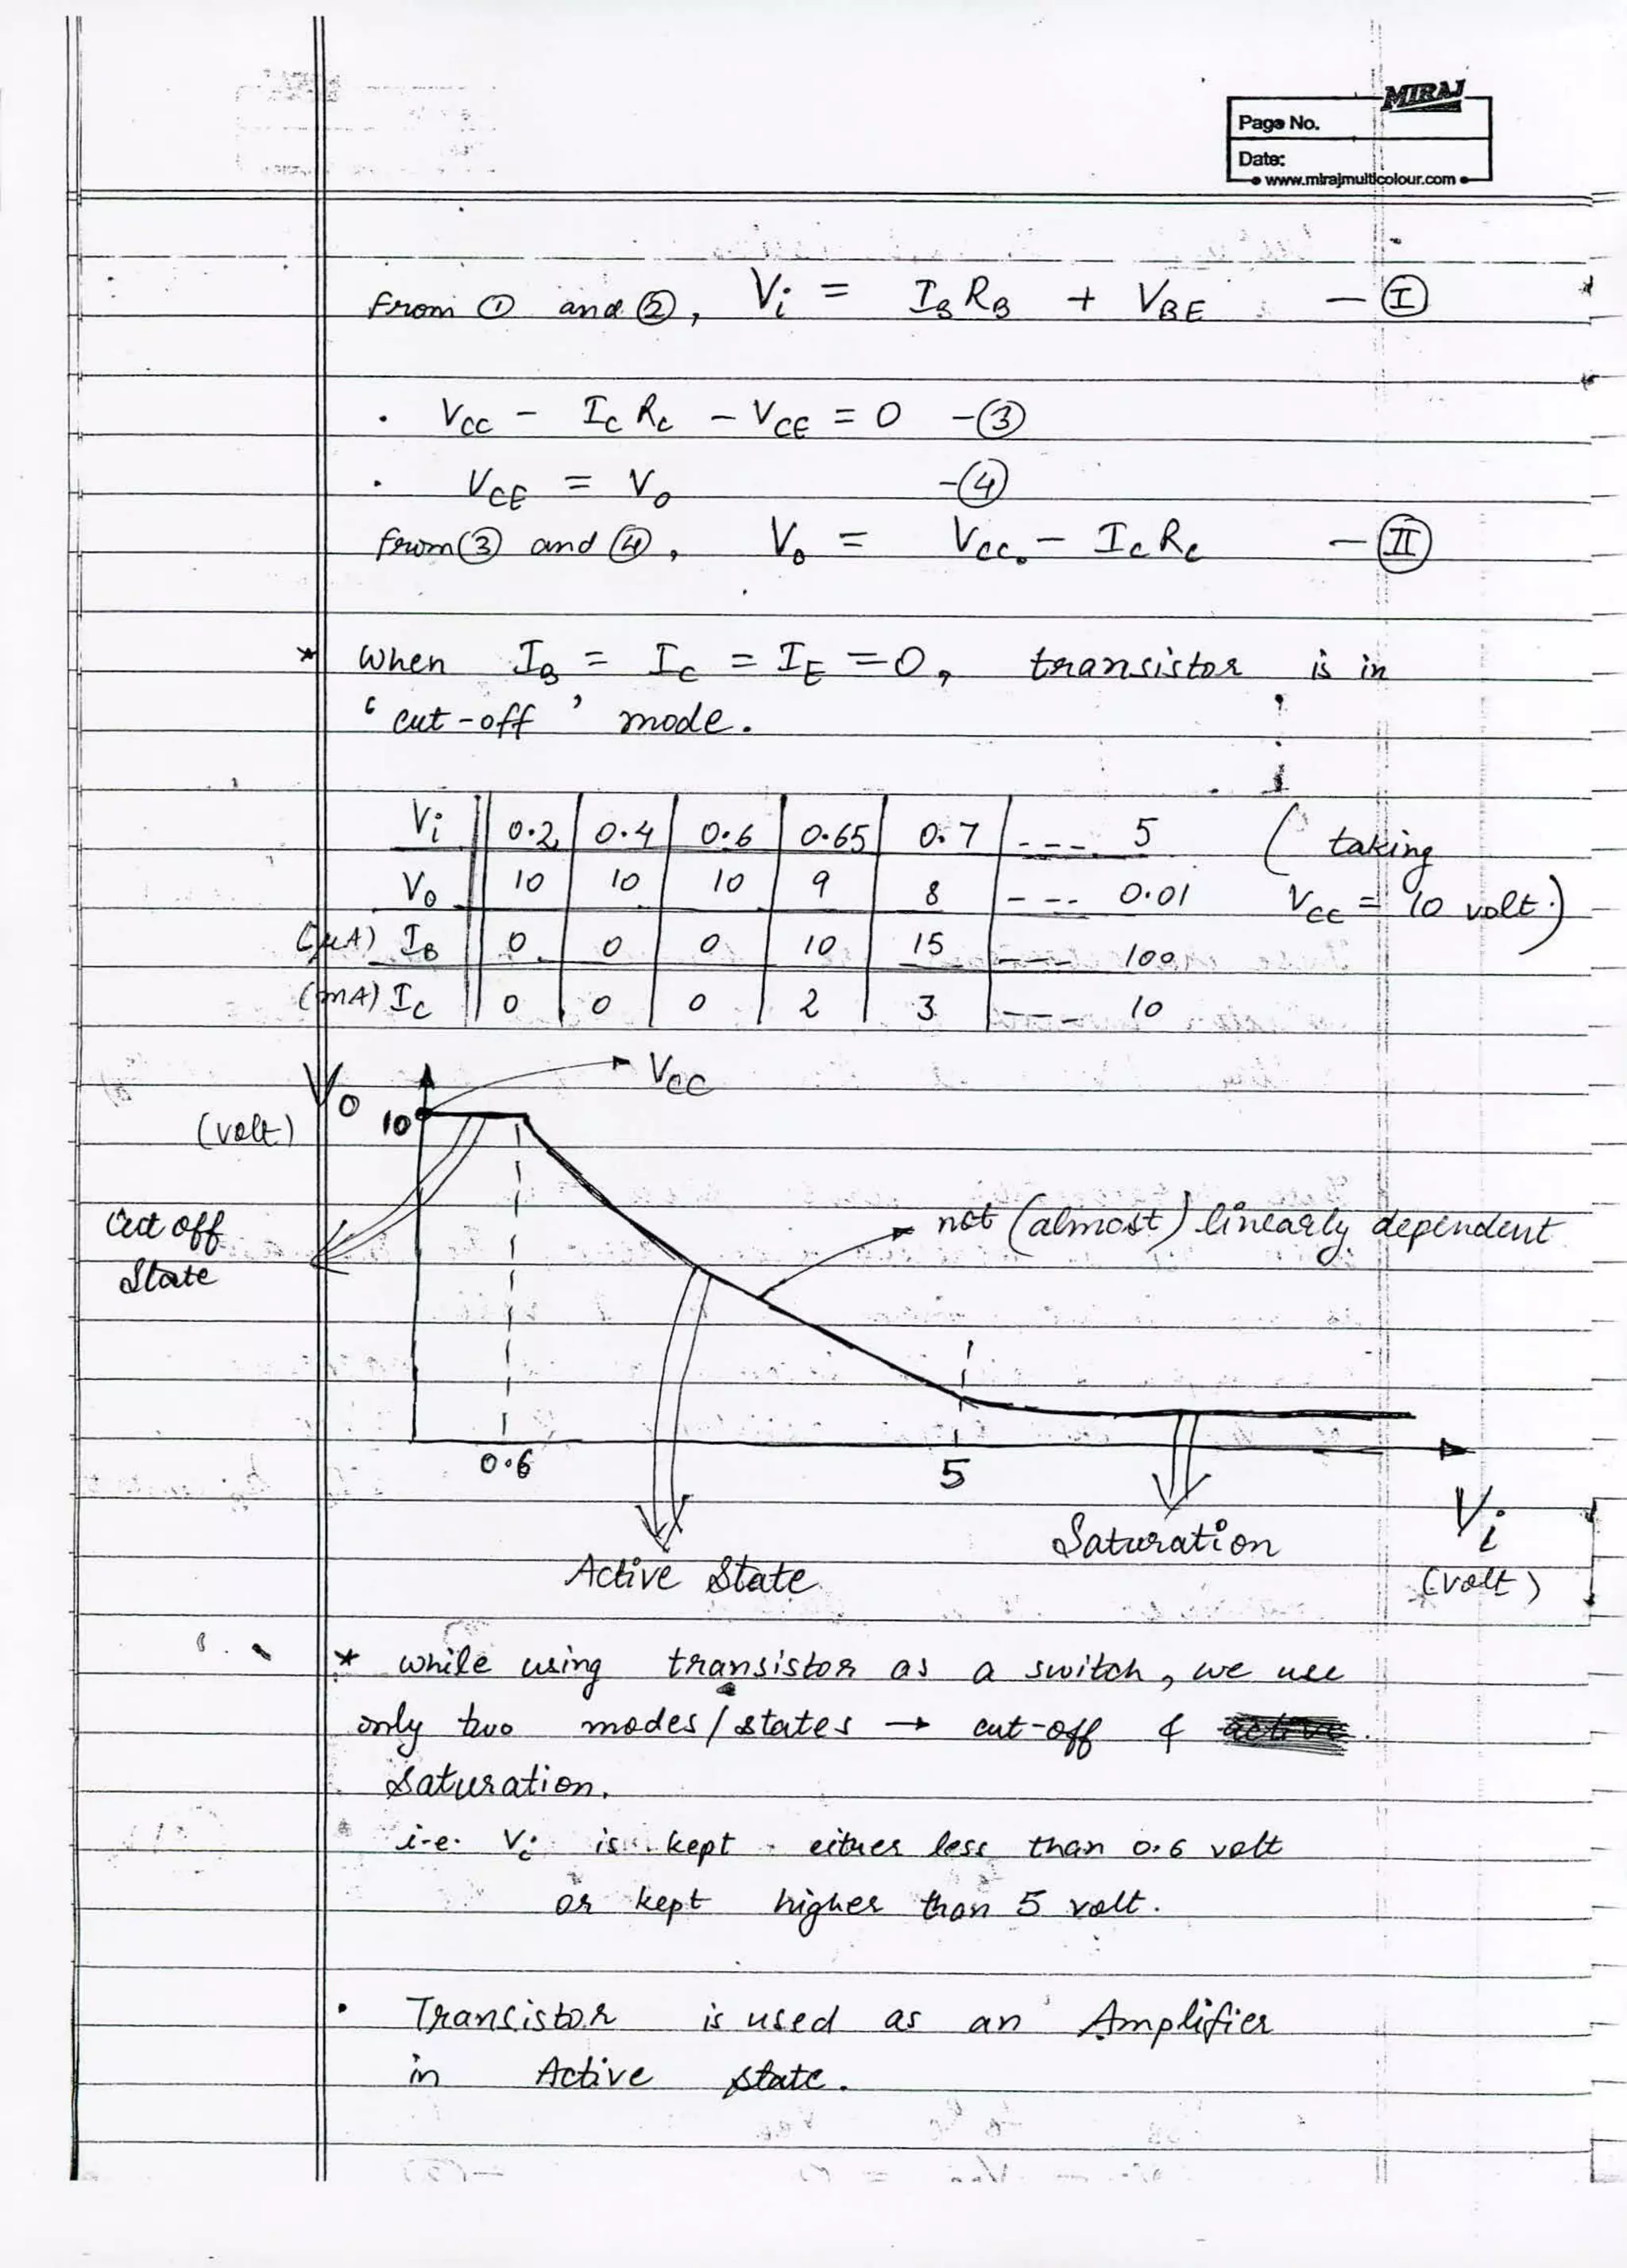 MIRAJ
Page No.
Date:
www.mirajmulticolour.com
From ① and ②, Vi = IB RB + VBE - Ⓘ
• VCC - IC RC - VCE = 0 - ③
• VCE = Vo - ④
from ③ and ④, Vo = VCC - IC RC - (II)
* When IB = IC = IE = 0, transistor is in
'cut-off' mode.
Vi 0.2 0.4 0.6 0.65 0.7 ---- 5 (taking
Vo 10 10 10 9 8 --- 0.01 VCC = 10 volt.)
(μA) IB 0 0 0 10 15 --- 100
(mA) IC 0 0 0 2 3 --- 10
VCC
Vo
10
(volt)
not (almost) linearly dependent
Cut off
State
0.6
5
Vi
Saturation
Active State
(volt)
* while using transistor as a switch, we use
only two modes/states → cut-off &
Saturation.
i.e. Vi is kept either less than 0.6 volt
or kept higher than 5 volt.
• Transistor is used as an Amplifier
in Active state.